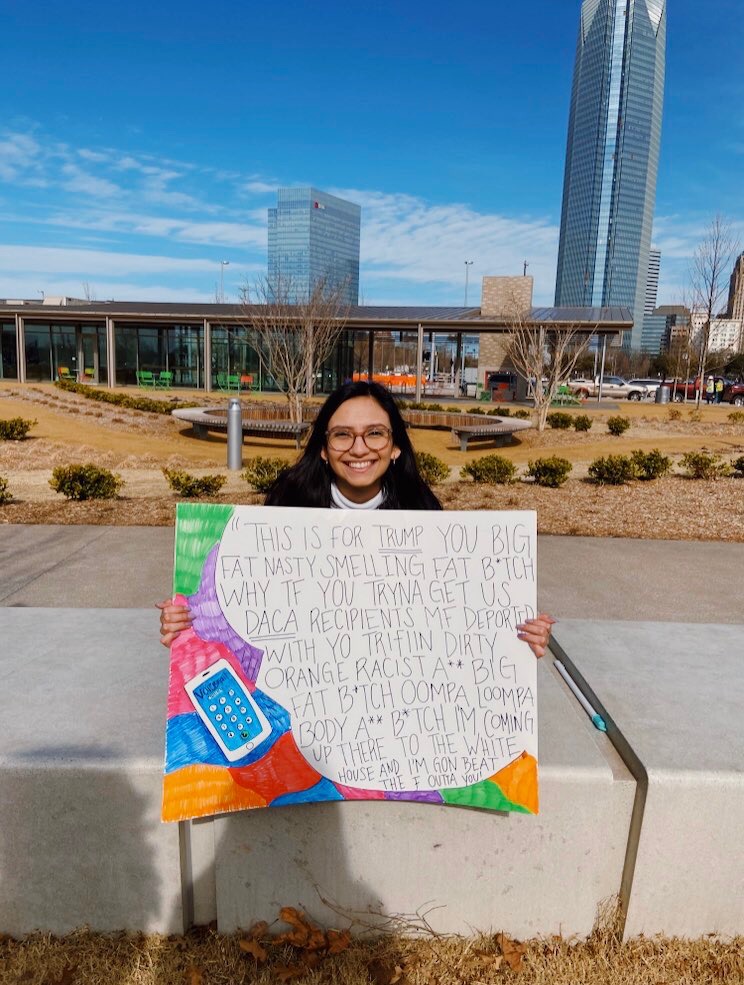 "THIS IS FOR TRUMP YOU BIG
FAT NASTY SMELLING FAT B*TCH
WHY TF YOU TRYNA GET US
DACA RECIPIENTS MF DEPORTED
WITH YO TRIFIIN DIRTY
ORANGE RACIST A** BIG
FAT B*TCH OOMPA LOOMPA
BODY A** B*TCH I'M COMING
UP THERE TO THE WHITE
HOUSE AND I'M GON BEAT
THE F OUTTA YOU"